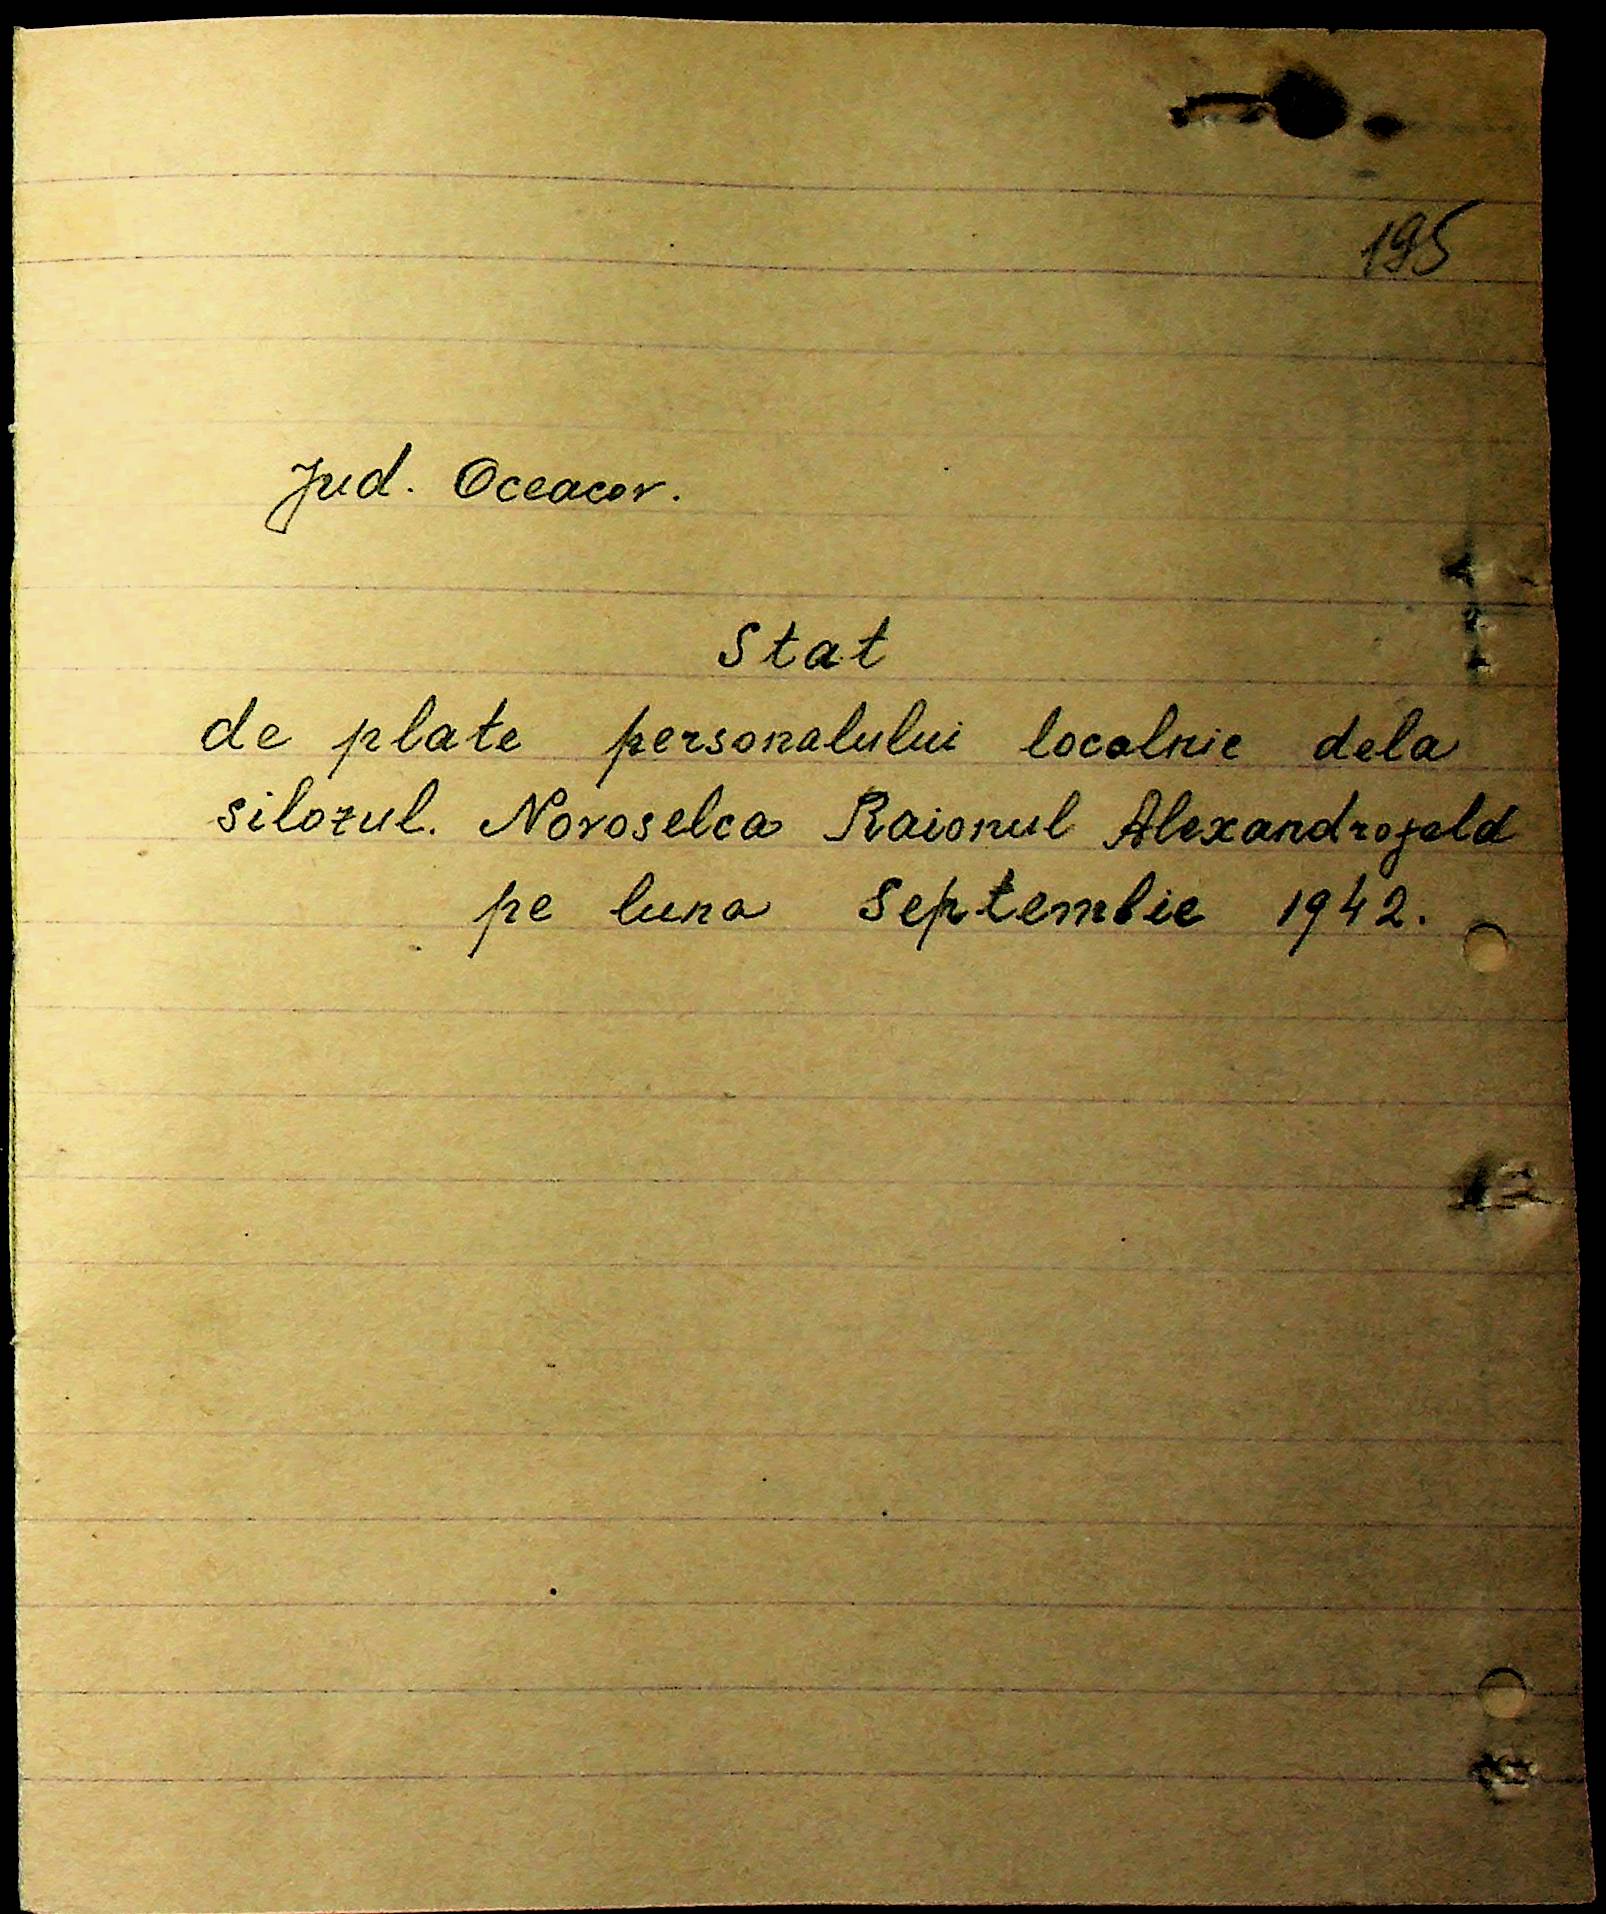 195
Jud. Oceacov.
Stat
de plate personalului localnic dela
silozul. Novoselca Raionul Alexandrofeld
pe luna Septembie 1942.